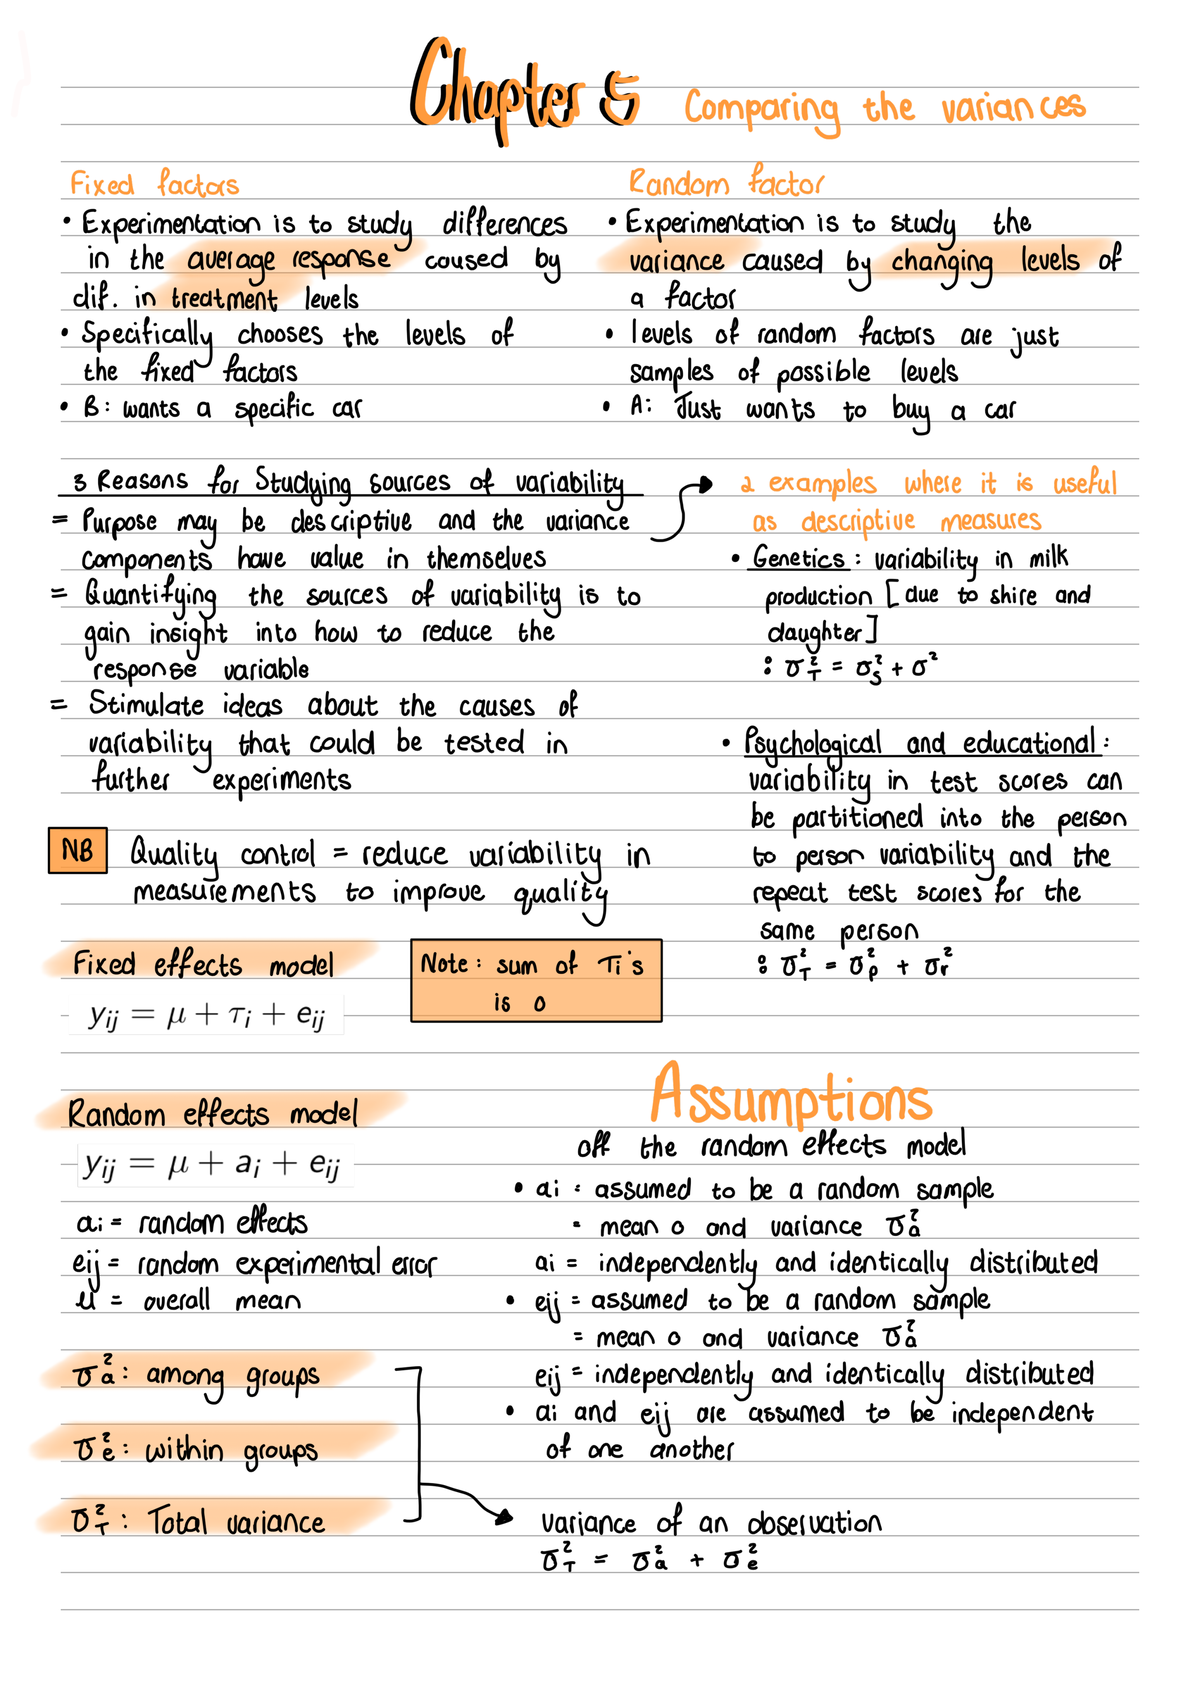 Chapter 5 Comparing the variances
Fixed factors
• Experimentation is to study differences
in the average response caused by
dif. in treatment levels
• Specifically chooses the levels of
the fixed factors
• B: wants a specific car
Random factor
• Experimentation is to study the
variance caused by changing levels of
a factor
• levels of random factors are just
samples of possible levels
• A: Just wants to buy a car
3 Reasons for Studying sources of variability
= Purpose may be descriptive and the variance
components have value in themselves
= Quantifying the sources of variability is to
gain insight into how to reduce the
response variable
= Stimulate ideas about the causes of
variability that could be tested in
further experiments
2 examples where it is useful
as descriptive measures
• Genetics: variability in milk
production [due to shire and
daughter]
: σ²_T = σ²_S + σ²
• Psychological and educational:
variability in test scores can
be partitioned into the person
to person variability and the
repeat test scores for the
same person
: σ²_T = σ²_p + σ²_r
NB Quality control = reduce variability in
measurements to improve quality
Fixed effects model
y_ij = μ + τ_i + e_ij
Note: sum of τi's
is 0
Random effects model
y_ij = μ + a_i + e_ij
ai = random effects
eij = random experimental error
μ = overall mean
σ²_a: among groups
σ²_e: within groups
σ²_T: Total variance
Assumptions
off the random effects model
• ai : assumed to be a random sample
• mean 0 and variance σ²_a
ai = independently and identically distributed
• eij = assumed to be a random sample
= mean 0 and variance σ²_a
eij = independently and identically distributed
• ai and eij are assumed to be independent
of one another
variance of an observation
σ²_T = σ²_a + σ²_e